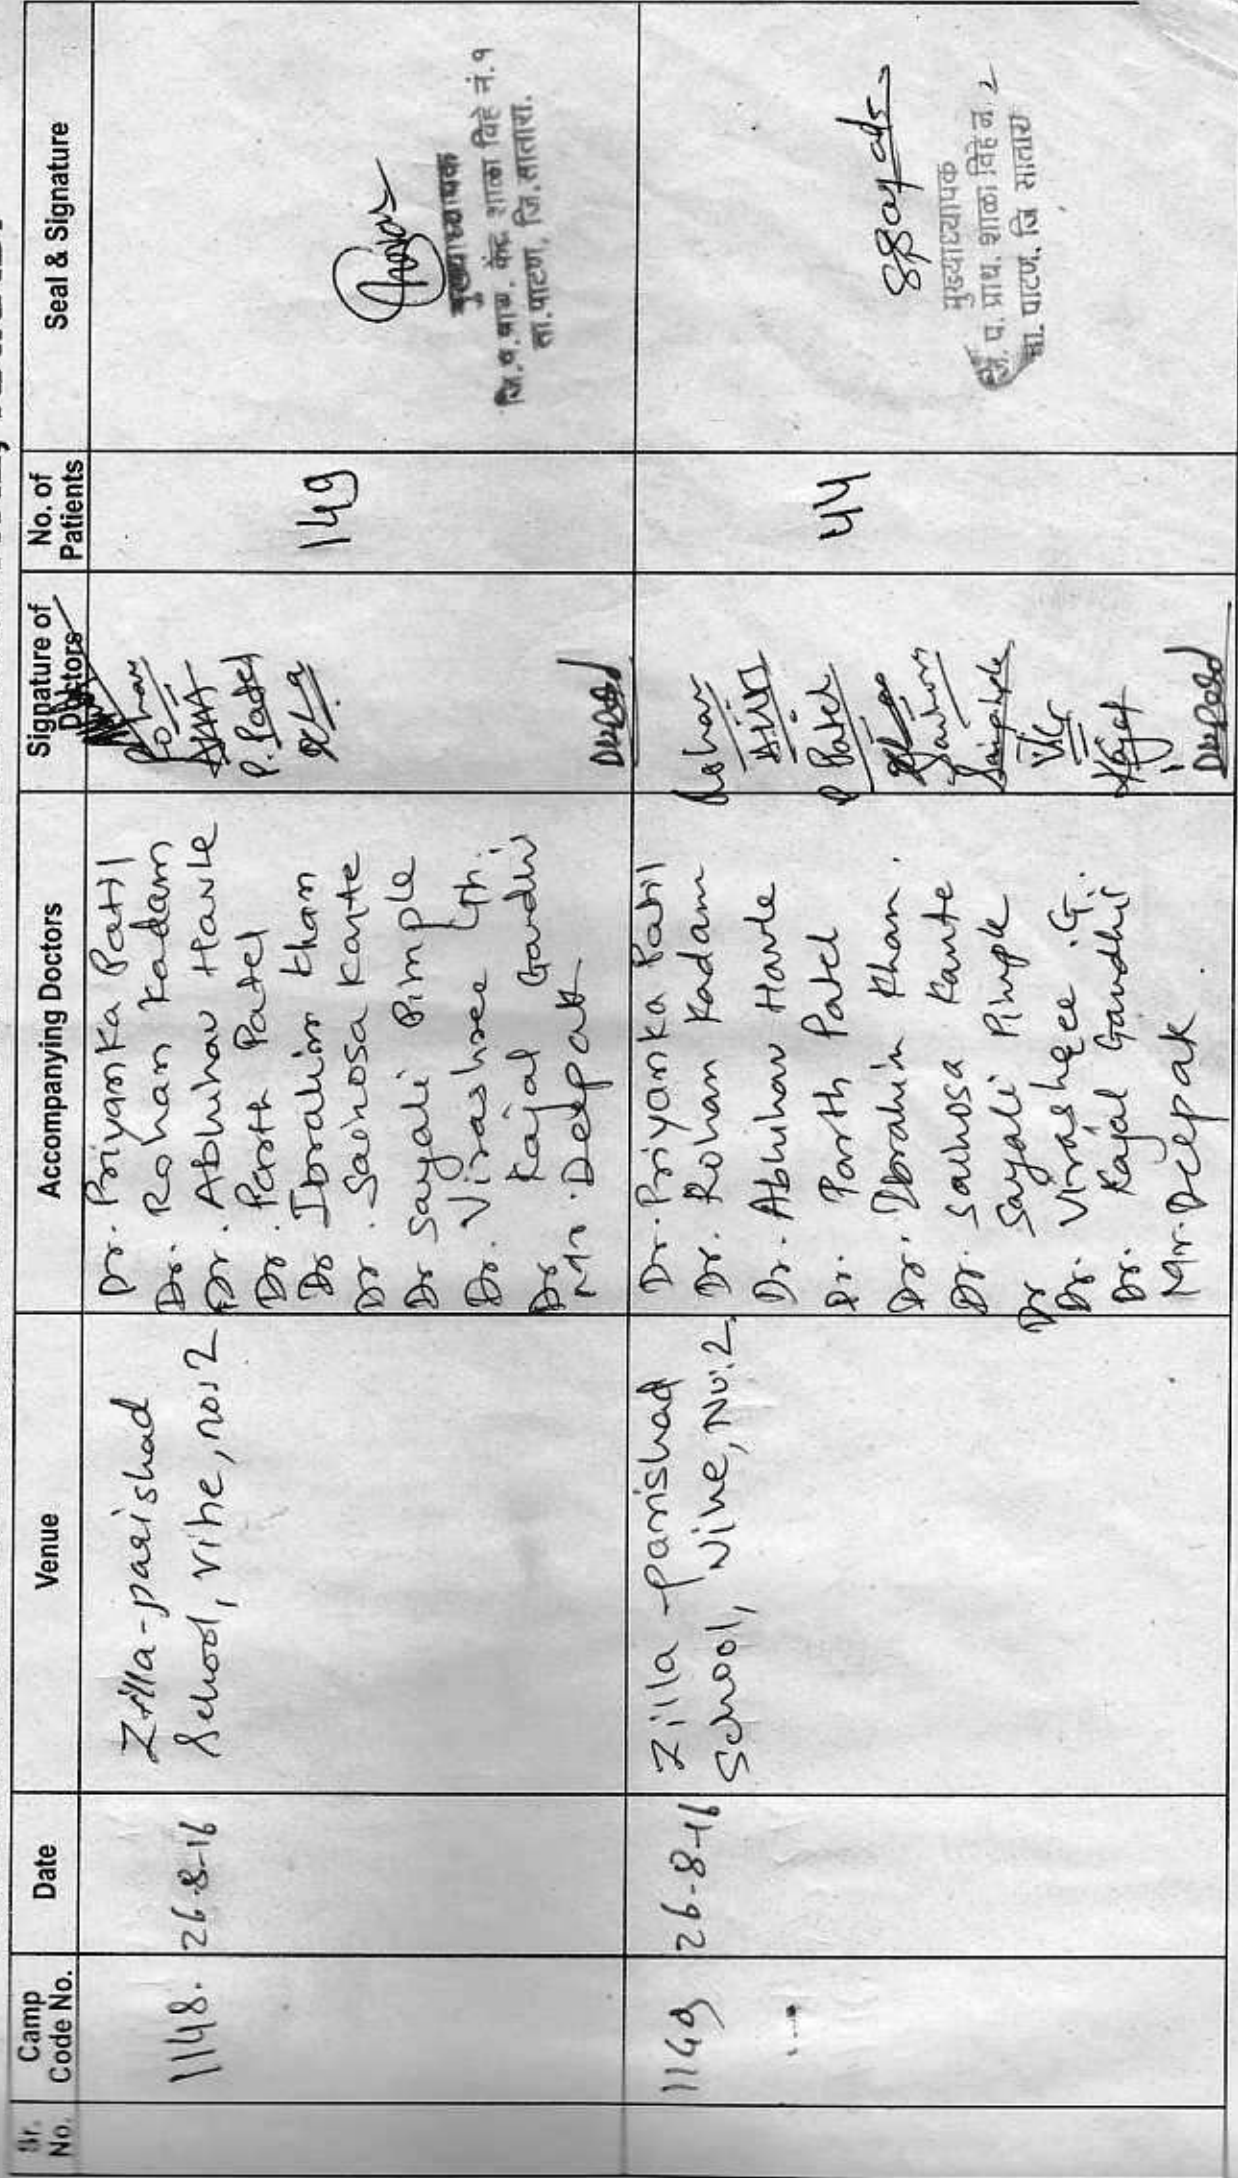 Sr. No.
Camp Code No.
Date
Venue
Accompanying Doctors
Signature of Doctors
No. of Patients
Seal & Signature
1148.
26-8-16
Zilla-parishad
School, Vihe, no:2
Dr. Priyanka Patil
Dr. Rohan Kadam
Dr. Abhihav Harle
Dr. Parth Patel
Dr Ibrahim Khan
Dr. Sainosa Kante
Dr Sayali Pimple
Dr. Virashree Gh.
Dr Kajal Gandhi
Mr. Deepak
P. Patel
149
मुख्याध्यापक
जि.प.प्राथ. केंद्र शाळा विहे नं.१
ता.पाटण, जि.सातारा.
1149
26-8-16
Zilla parishad
School, Vihe, No:2,
Dr. Priyanka Patil
Dr. Rohan Kadam
Dr. Abhihav Harle
Dr. Parth Patel
Dr. Ibrahim Khan.
Dr. Saihosa Kante
Dr Sayali Pimple
Dr. Virashree .G.
Dr. Kajal Gandhi
Mr. Deepak
P Patel
Kajal
44
मुख्याध्यापक
जि. प. प्राथ. शाळा विहे नं. २
ता. पाटण, जि सातारा